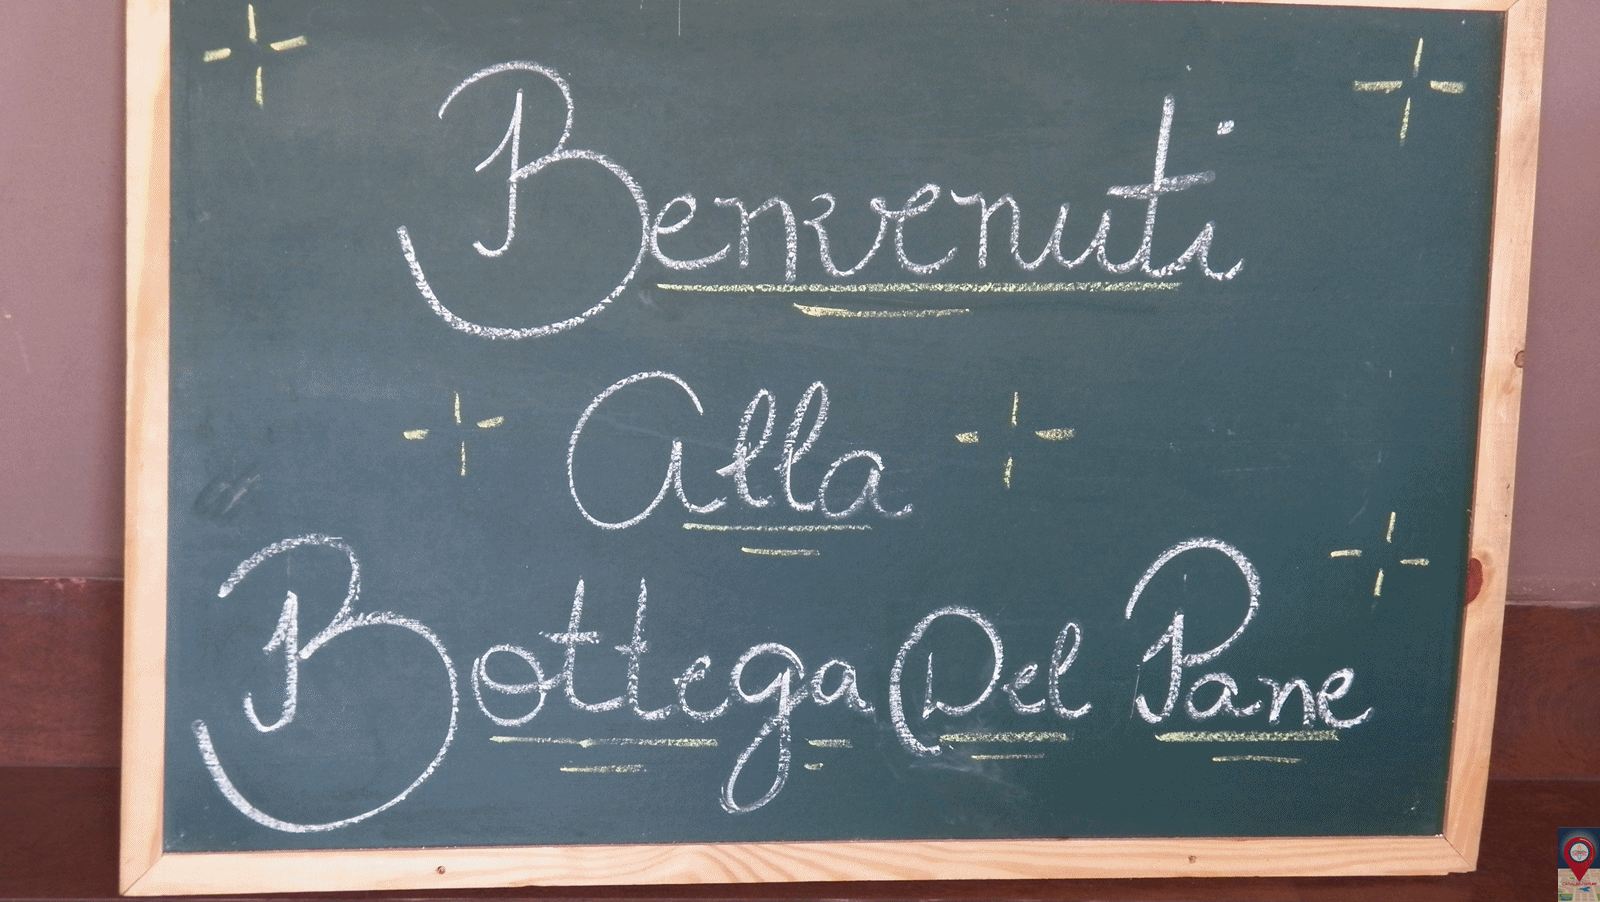 Benvenuti
Alla
Bottega Del Pane